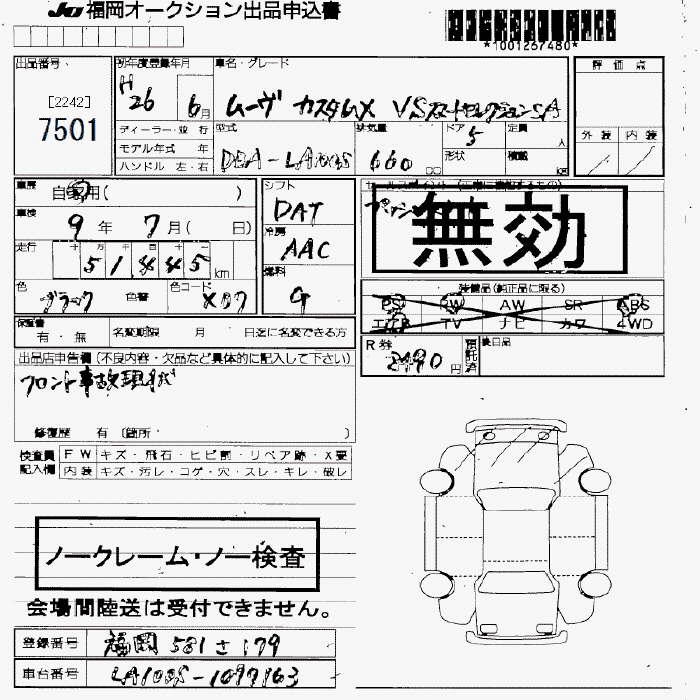 JU 福岡オークション出品申込書
*1001267480*
出品番号
[2242]
7501
初年度登録年月
H26 6月
車名・グレード
ムーヴ カスタムX VSスマートセレクションSA
評価点
外装 内装
ディーラー・並行
モデル年式 年
ハンドル 左・右
型式
DBA-LA100S
排気量
660
cc
ドア
5
形状
定員
人
積載
kg
車歴
自家用( )
車検
9年 7月( 日)
走行
十 万 千 百 十 一
51445 km
色
ブラック 色替
色コード
X07
シフト
DAT
冷房
AAC
燃料
G
セールスポイント (正常に機能するもの)
無効
装備品(純正品に限る)
PS PW AW SR ABS
エアB TV ナビ カワ 4WD
保証書
有・無
名変期限 月 日迄に名変できる方
R券
2490円
預託済
後日品
出品店申告欄 (不良内容・欠品など具体的に記入して下さい)
フロント事故現状
修復歴 有 〔箇所・ 〕
検査員記入欄
FW キズ・飛石・ヒビ割・リペア跡・X要
内装 キズ・汚レ・コゲ・穴・スレ・キレ・破レ
ノークレーム・ノー検査
会場間陸送は受付できません。
登録番号 福岡 581 さ 179
車台番号 LA100S-1097163